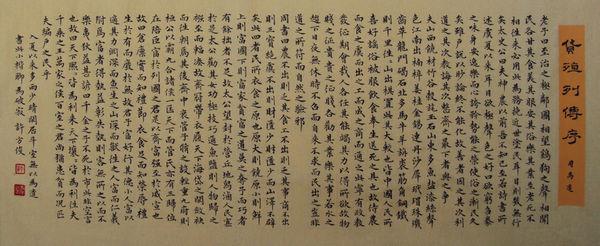 貨殖列傳序
司馬遷
老子曰至治之極鄰國相望鷄狗之聲相聞
民各甘其食美其服安其俗樂其業至老死不
相往來必用此為務挽近世塗民耳目則幾無行
矣太史公曰夫神農以前吾不知已至若詩書所
述虞夏以來耳目欲極聲色之好口欲窮芻豢
之味身安逸樂而心誇矜勢能之榮使俗之漸民久
矣雖戶說以眇論終不能化故善者因之其次利
道之其次教誨之其次整齊之最下者與之爭
夫山西饒材竹穀纑旄玉石山東多魚鹽漆絲聲
色江南出柟梓薑桂金錫連丹沙犀玳瑁珠璣
齒革龍門碣石北多馬牛羊旃裘筋角銅鐵
則千里往往山出棋置此其大較也皆中國人民所
喜好謠俗被服飲食奉生送死之具也故待農
而食之虞而出之工而成之商而通之此寧有政教
發徵期會哉人各任其能竭其力以得所欲故物
賤之徵貴貴之徵賤各勸其業樂其事若水之
趨下日夜無休時不召而自來不求而民出之豈非
道之所符而自然之驗邪
周書曰農不出則乏其食工不出則乏其事商不出
則三寶絕虞不出則財匱少財匱少而山澤不辟
矣此四者民所衣食之原也原大則饒原小則鮮
上則富國下則富家貧富之道莫之奪予而巧者
有餘拙者不足故太公望封於營丘地潟鹵人民寡
於是太公勸其女功極技巧通魚鹽則人物歸之
繈至而輻湊故齊冠帶衣履天下海岱之間斂袂
而往朝焉其後齊中衰管子修之設輕重九府則
桓公以霸九合諸侯一匡天下而管氏亦有三歸位
在陪臣富於列國之君是以齊富強至於威宣也
故曰倉廩實而知禮節衣食足而知榮辱禮
生於有而廢於無故君子富好行其德小人富以
適其力淵深而魚生之山深而獸往之人富而仁義
附焉富者得勢益彰失勢則客無所之以而不
樂夷狄益甚諺曰千金之子不死於市此非空言也
故曰天下熙熙皆為利來天下壤壤皆為利往夫
千乘之王萬家之侯百室之君尚猶患貧而況匹
夫編戶之民乎
入夏以來多雨少晴閒居斗室無以為遣
書此小楷聊為破寂 許方俊